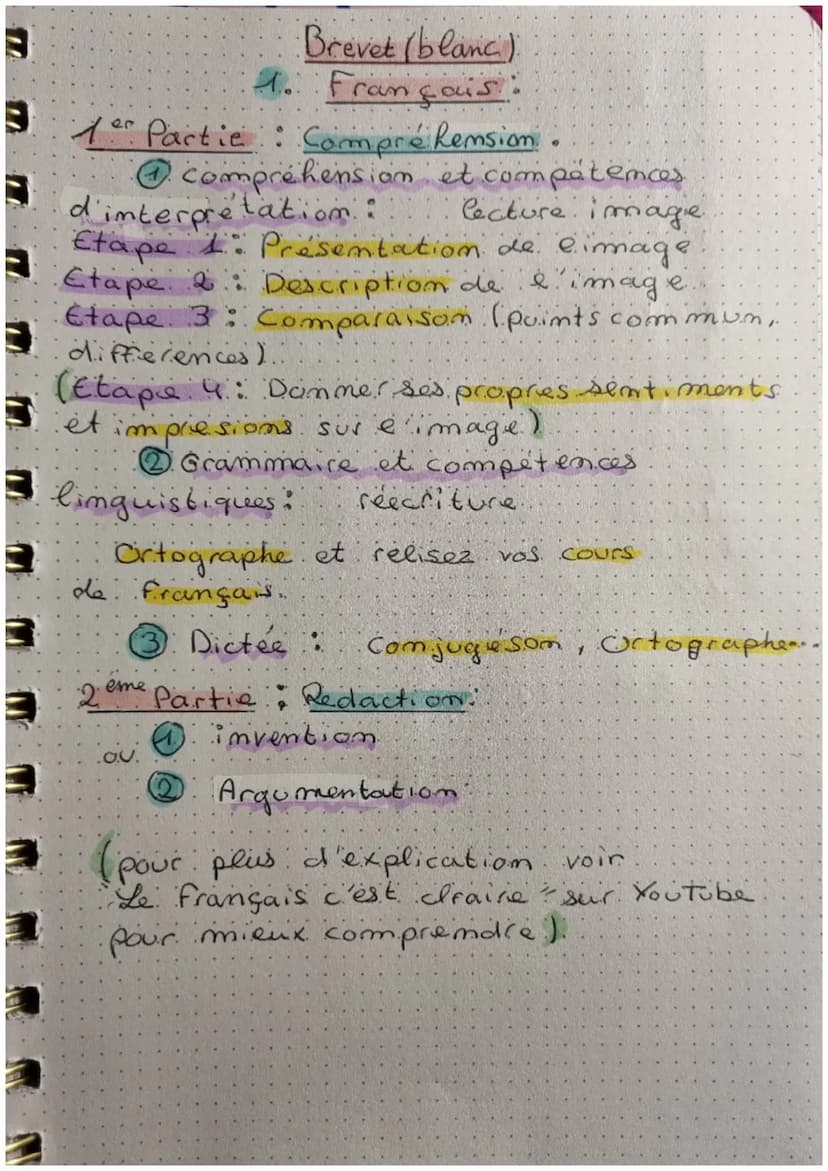 Brevet (blanc)
1. Français :
1er Partie : Compréhension.
① compréhension et compétences
d'interprétation : lecture image
Etape 1 : Présentation de l'image
Etape 2 : Description de l'image
Etape 3 : Comparaison (points commun,
differences)
(Etape 4 : Donner ses propres sentiments
et impresions sur l'image)
② Grammaire et compétences
linguistiques : réécriture
Ortographe et relisez vos cours
de français.
③ Dictée : Conjugéson, Ortographe...
2ème Partie : Redaction :
① invention
ou
② Argumentation
(pour plus d'explication voir
"Le français c'est claire" sur YouTube
pour mieux comprendre)